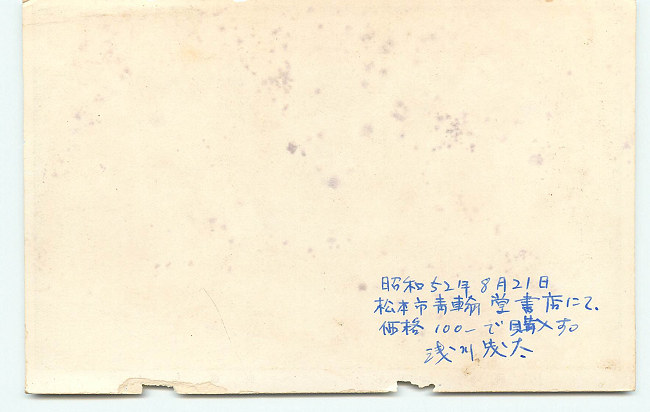 昭和52年8月21日
松本市青輪堂書店にて、
価格100—で購入す。
浅川茂太